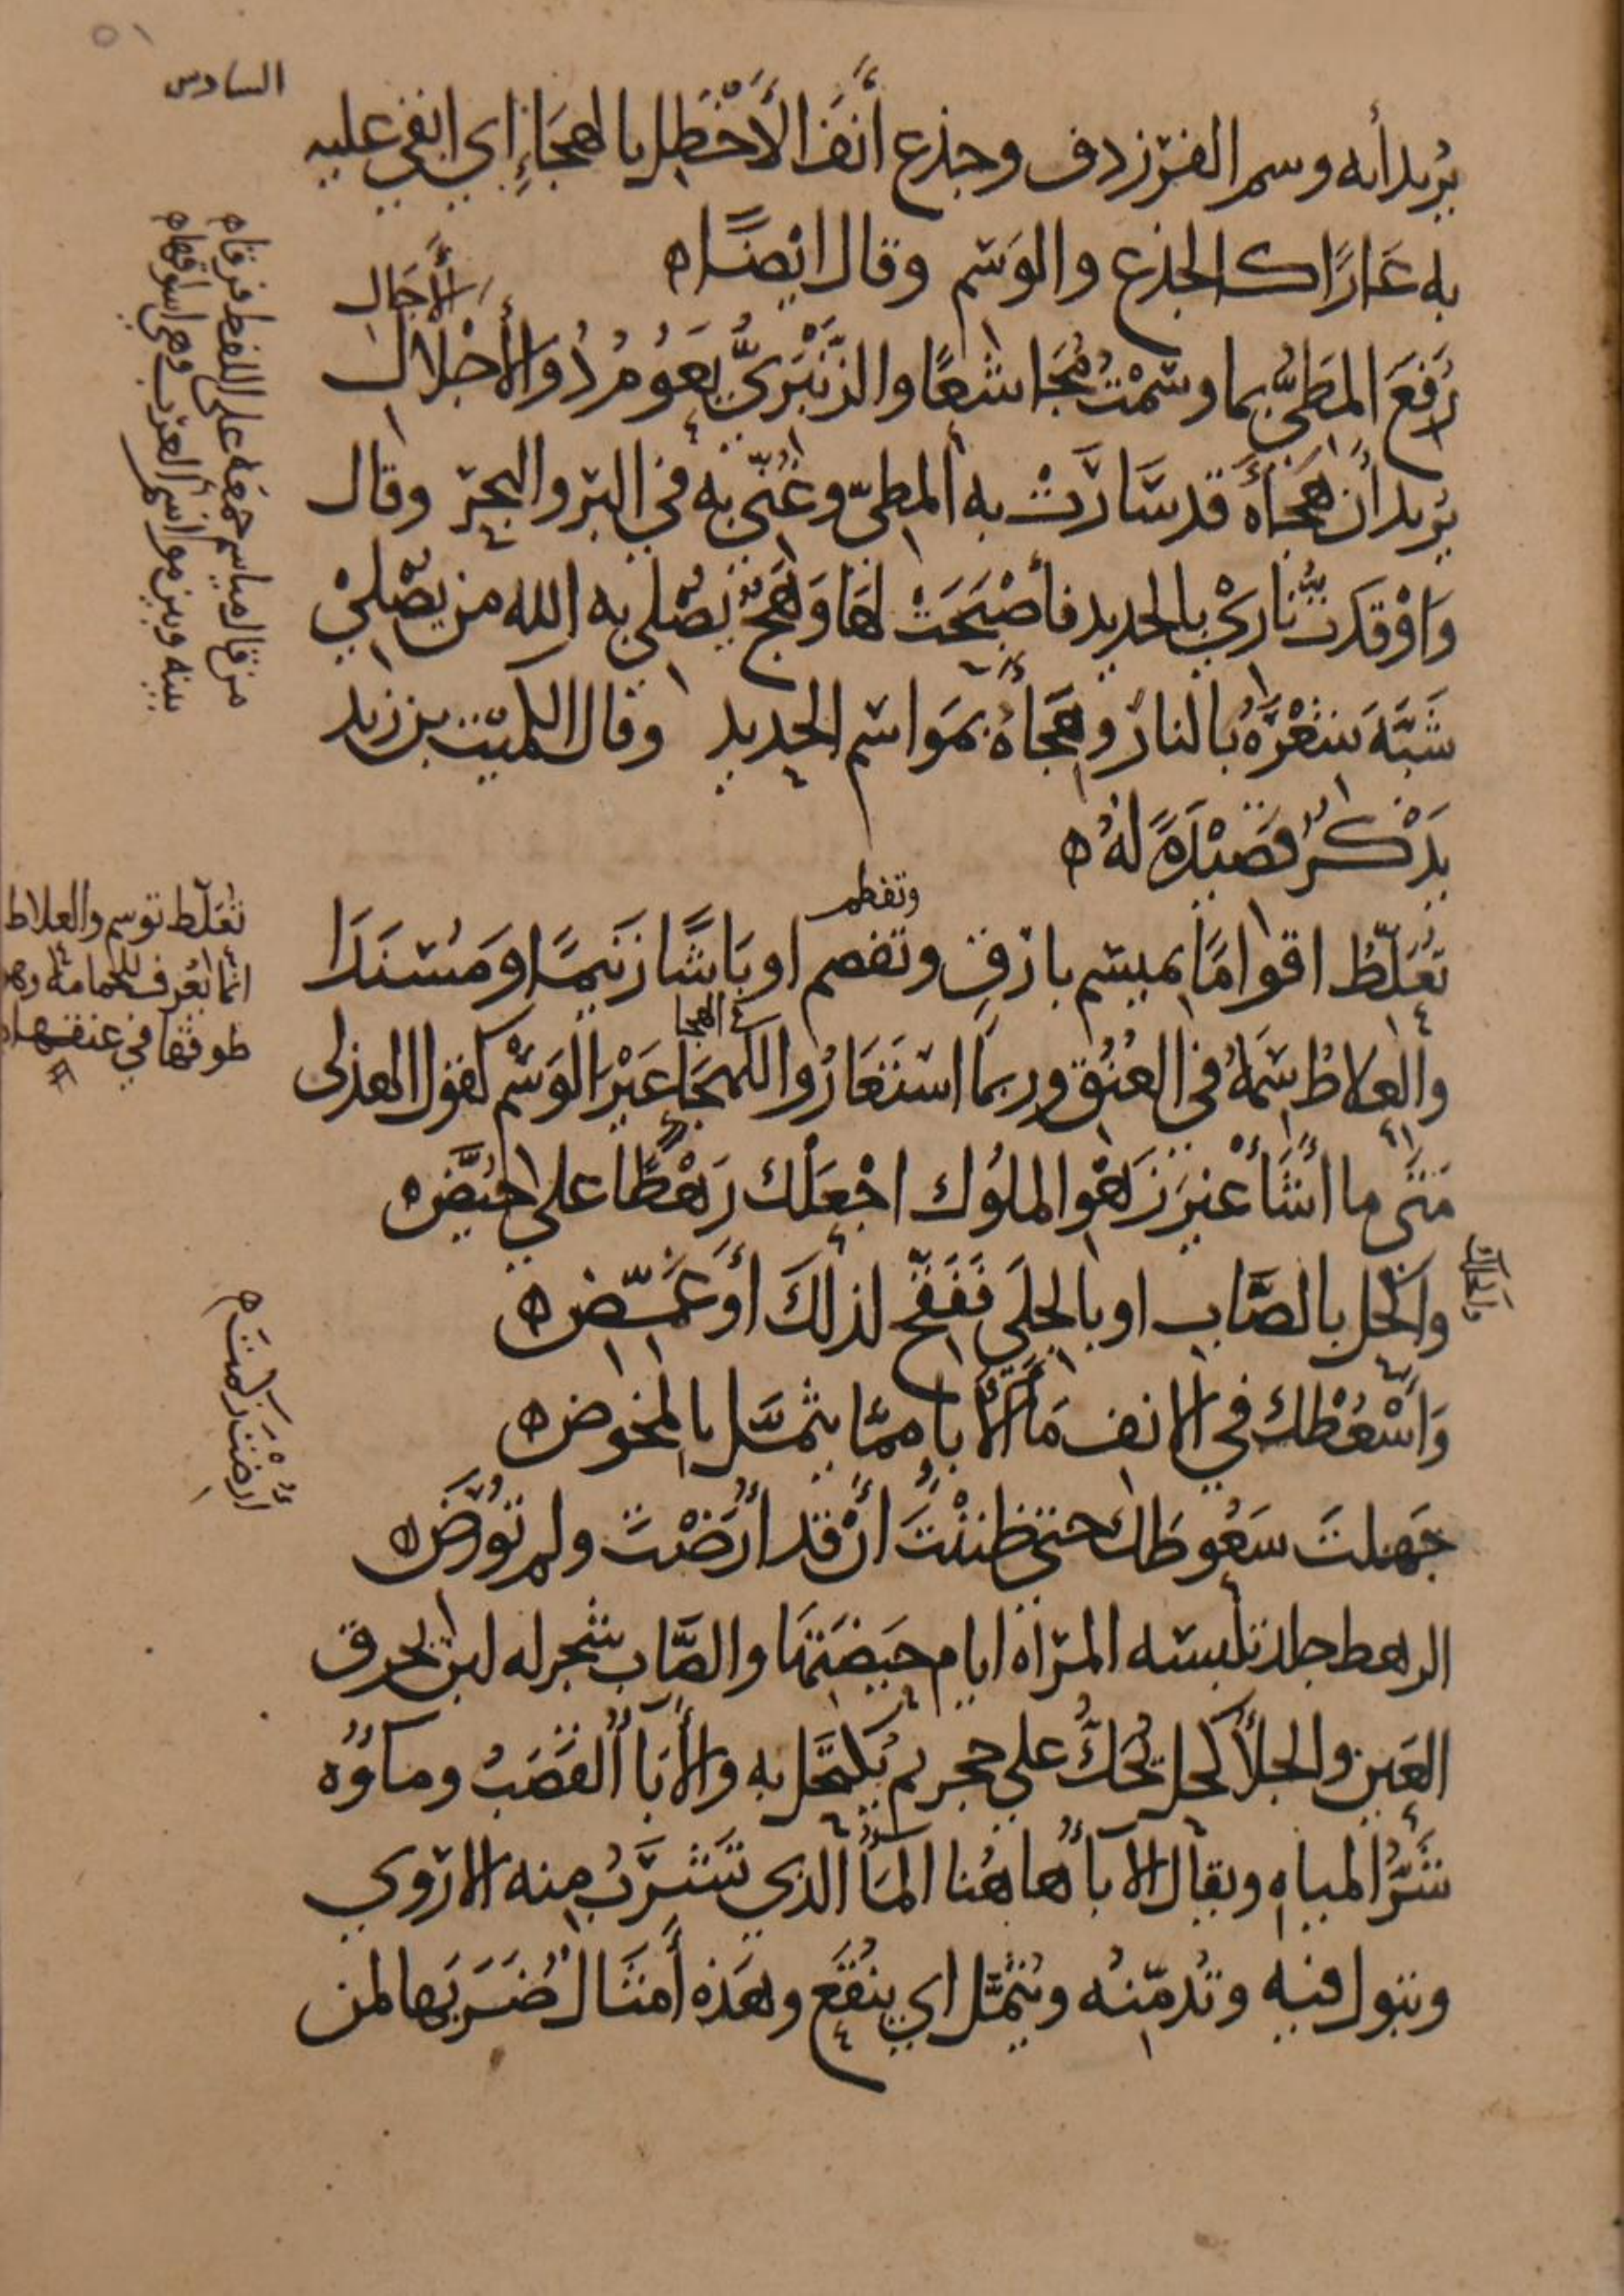 ٥١
السادس
يُريد أنه وسم الفرزدق وجذع أنفَ الأَخْطَل بالهجَاءِ اي ابقي عليه
به عَارًا كالجذع والوَسْم وقال ايْضًا ه
الأَجَال
رُفِعَ المَطِيُّ بما وسَمْتُ مُجَاشعًا والزَّنْبَرِيُّ يَعُومُ ذُو الأَجْلاَل
يُريد أن هجَاَه قد سَارَتْ به المطيّ وغُنّي به في البَر والبحر وقال
وَاوْقَدتُ نَارِيْ بالحديد فأصْبَحَتْ لهَا وَهَجٌ يُصْلِي به الله من يُصْلِيْ
شَبَّهَ شِعْرَهُ بالنار وهجَاهُ بمَوَاسم الحديد وقال الكميت بن زيد
يَذْكُرُ قصَيْدَةً لهُ ه
وتقطم
تُعَلِّطُ اقوامًا بميسَم بارقٍ وتفصم اوبَاشًا زَنيمًا ومُسْنَدَا
الهجا
والعِلاطُ سِمَةٌ في العُنُق وربما اسْتَعَارُوا للهجَاءِ غَيْرَ الوَسْم كقول الهذلى
مَتَى ما أَشَأْ غيرَ زَهْوِ الملُوك اجْعَلْك رَهْطًا على حُيَّض ه
واكْحل بالصَّاب او بالجَلَى فَفَقِّحْ لذلكَ أو غَمِّض ه
وَأُسْعِطْكَ في الانف مَاَ الأَبَاِ ممَّا يثمَّل بالمِخوض ه
جَهِلتَ سَعُوطَك حتى ظننْتَ أنْ قد أُرِضْتَ ولم تُؤرَض ه
الرهط جلد تلبسه المرأه ايام حَيضَتهَا والصَّاب شجر له لبن يحرق
العَين والجلأ كحل يُحَكُّ على حجر ثم يُكتَحَل به والأَبَأُ القَصَبُ ومآؤُه
شَرُّ المياهِ ويقال الأبأُ هاهُنا المآُ الذي تَشْرَبُ منه الاروي
وتبول فيه وتُدمّنُه ويُثَمَّل اي يُنْقَع وهَذه أمثَالٌ ضُرَبَها لمن
من قال مياسم جمعه على اللفظ فرقا ه
بينه وبين مواسم العرب وهي اسواقها ه
تُعَلّط توسم والعلاط
انما يُعْرف للحمامة وهو
طوقها في عنقها ه
أُرِضْتَ زكمتَ ه